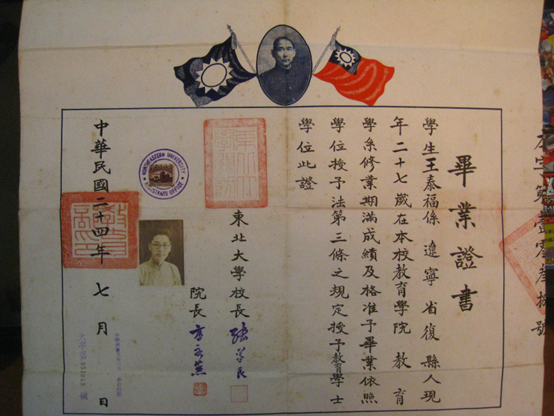 畢業證書
學生王泰福係遼寧省復縣人現
年二十七歲在本校教育學院教育
學系修業期滿成績及格准予畢業依照
學位授予法第三條之規定授予教育學士
學位此證
東北大學校長 張學良
院長 方永蒸
中華民國二十四年七月 日
NORTHEASTERN UNIVERSITY